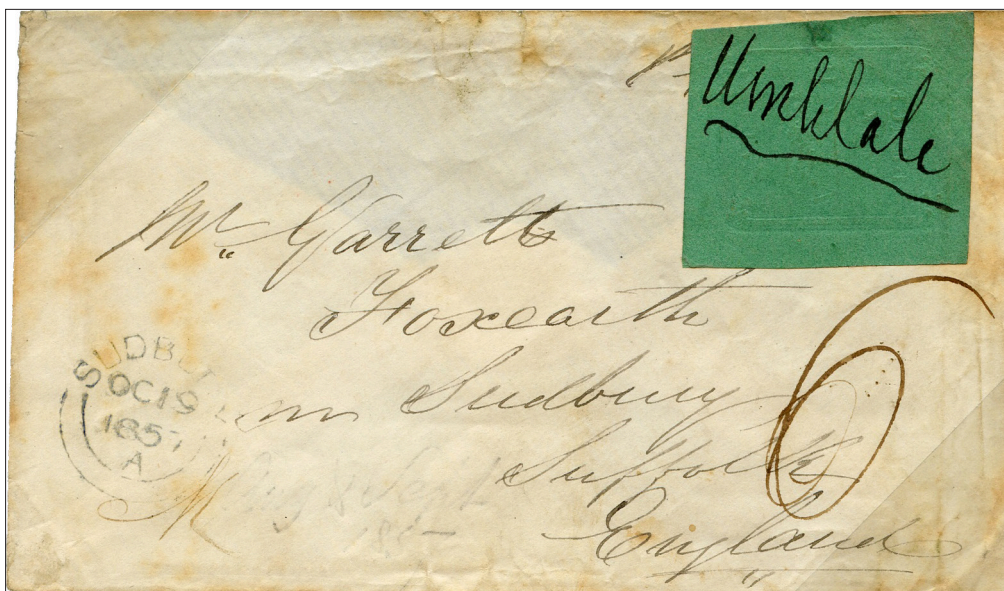 Umhlali
Mr. Garrett
Foxearth
Sudbury
Suffolk
England
6
SUDBU
OC 19
1857
A